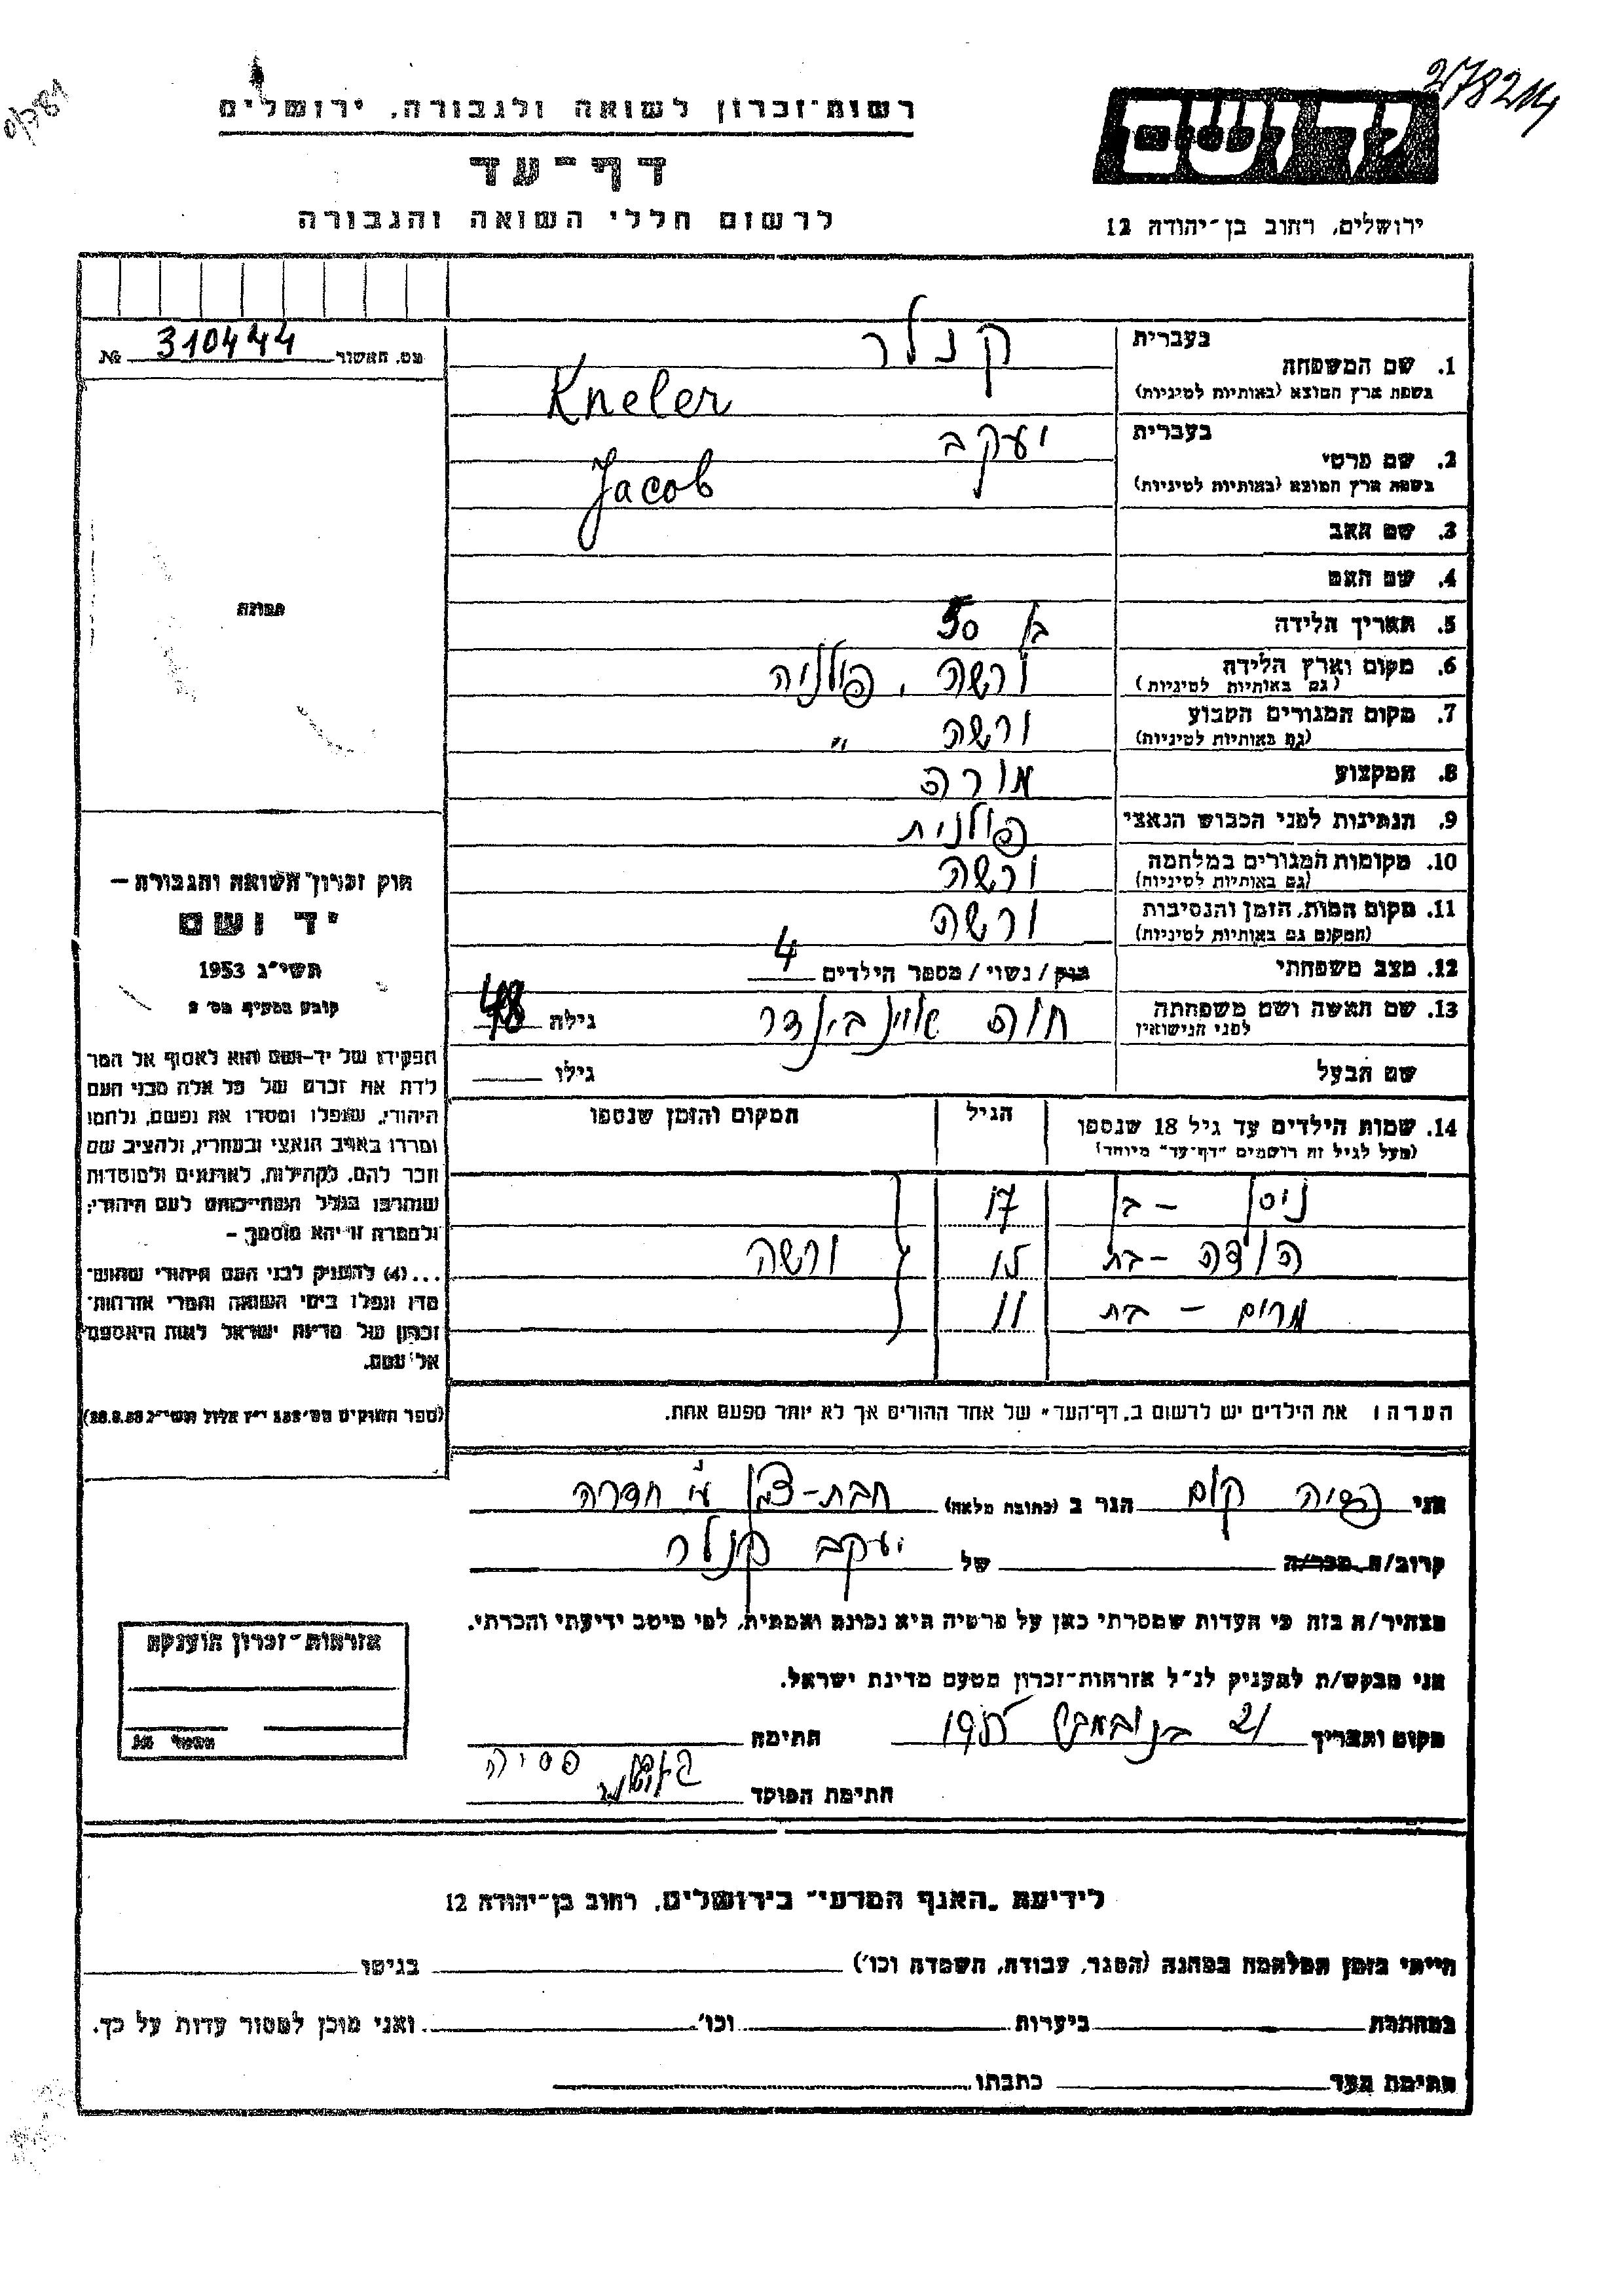 21782114
רשות־זכרון לשואה ולגבורה, ירושלים
יד ושם
דף־עד
לרשום חללי השואה והגבורה
ירושלים, רחוב בן־יהודה 12
מס. האשור 310444 №
בעברית קנלר
1. שם המשפחה
בשפת ארץ המוצא (באותיות לטיניות) Kneler
בעברית יעקב
2. שם פרטי
בשפת ארץ המוצא (באותיות לטיניות) Jacob
3. שם האב
4. שם האם
תמונה
5. תאריך הלידה בן 50
6. מקום וארץ הלידה ורשה, פולניה
(גם באותיות לטיניות)
7. מקום המגורים הקבוע ורשה "
(גם באותיות לטיניות)
8. המקצוע מורה
9. הנתינות לפני הכבוש הנאצי פולנית
10. מקומות המגורים במלחמה ורשה
(גם באותיות לטיניות)
11. מקום המות, הזמן והנסיבות ורשה
(המקום גם באותיות לטיניות)
12. מצב משפחתי רווק / נשוי / מספר הילדים 4
13. שם האשה ושם משפחתה חוה גילה 48
לפני הנישואין
שם הבעל גילו
חוק זכרון השואה והגבורה –
יד ושם
תשי"ג 1953
קובע בסעיף מס' 2
תפקידו של יד-ושם הוא לאסוף אל המו־
לדת את זכרם של כל אלה מבני העם
היהודי, שנפלו ומסרו את נפשם, נלחמו
ומרדו באויב הנאצי ובעוזריו, ולהציב שם
וזכר להם, לקהילות, לארגונים ולמוסדות
שנחרבו בגלל השתייכותם לעם היהודי;
ולמטרה זו יהא מוסמך –
...(4) להעניק לבני העם היהודי שהוש־
מדו ונפלו בימי השואה והמרי אזרחות־
זכרון של מדינת ישראל לאות היאספם
אל עמם.
(ספר החוקים מס' 132 י"ז אלול תשי"ג 28.8.53)
14. שמות הילדים עד גיל 18 שנספו הגיל המקום והזמן שנספו
(מעל לגיל זה רושמים "דף־עד" מיוחד)
ניסן – בן 17
הודה – בת 15 ורשה
מרים – בת 11
הערה: את הילדים יש לרשום ב"דף־העד" של אחד ההורים אך לא יותר מפעם אחת.
אני פסיה קום הגר ב (כתובת מלאה) חבת-ציון ע"י חדרה
קרוב/ה מכר/ה של יעקב קנלר
מצהיר/ה בזה כי העדות שמסרתי כאן על פרטיה היא נכונה ואמתית, לפי מיטב ידיעתי והכרתי.
אני מבקש/ת להעניק לנ"ל אזרחות־זכרון מטעם מדינת ישראל.
מקום ותאריך 21 בנובמבר 1955 חתימה
פסיה
חתימת הפוקד
אזרחות־זכרון הוענקה
לידיעת "האגף המדעי" בירושלים, רחוב בן־יהודה 12
הייתי בזמן המלחמה במחנה (הסגר, עבודה, השמדה וכו') בגיטו
במחתרת ביערות וכו' ואני מוכן למסור עדות על כך.
חתימת העד כתבתו